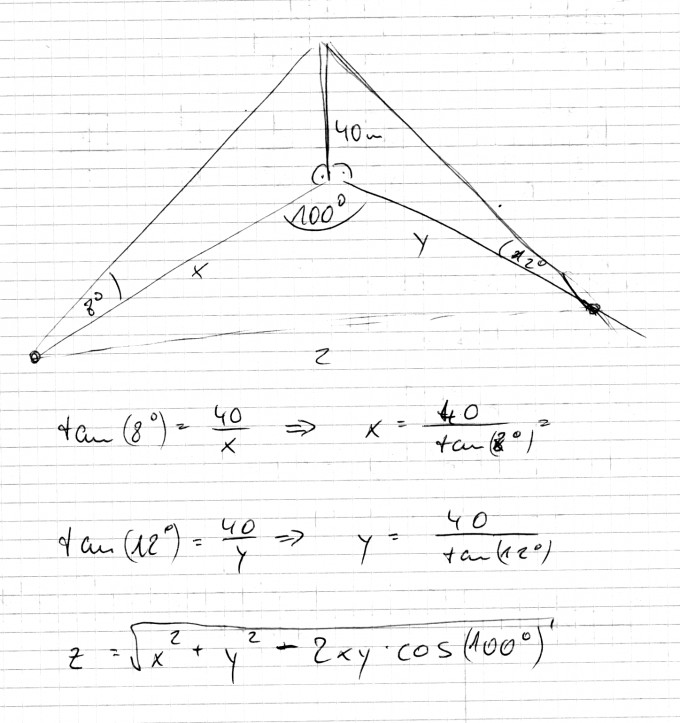 40m
100°
8°
x
y
12°
z
tan(8°) = 40/x ⇒ x = 40/tan(8°) =
tan(12°) = 40/y ⇒ y = 40/tan(12°)
z = √(x² + y² - 2xy · cos(100°))